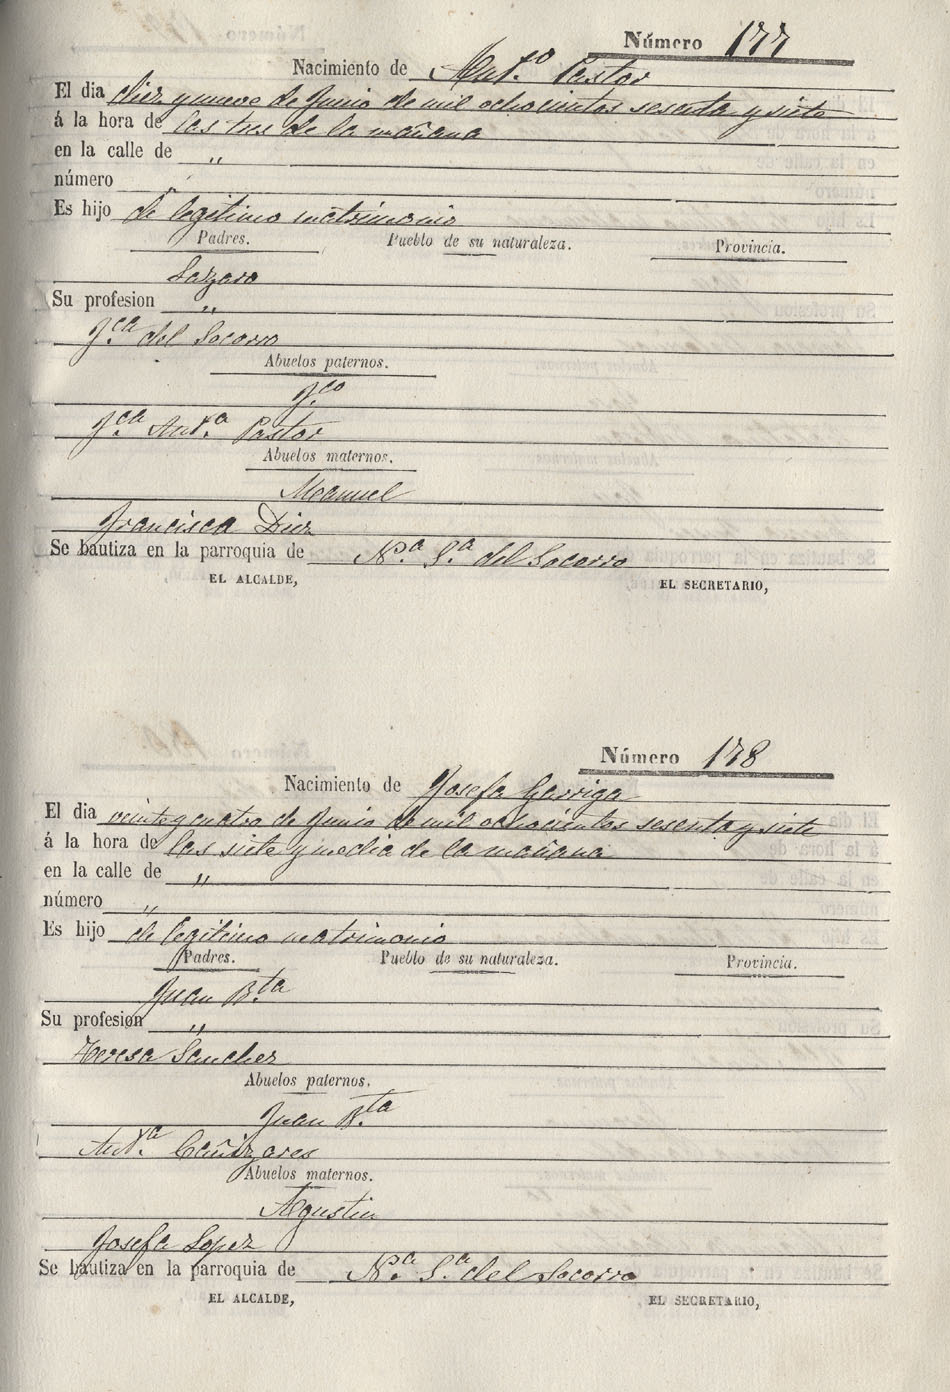 Número 177
Nacimiento de Ant.º Pastor
El dia diez y nueve de Junio de mil ochocientos sesenta y siete
á la hora de las tres de la mañana
en la calle de "
número
Es hijo de legitimo matrimonio
Padres. Pueblo de su naturaleza. Provincia.
Lazaro
Su profesion "
J.ca del Socorro
Abuelos paternos.
J.co
J.ca Ant.a Pastor
Abuelos maternos.
Manuel
Francisca Diez
Se bautiza en la parroquia de N.a S.a del Socorro
EL ALCALDE, EL SECRETARIO,
Número 178
Nacimiento de Josefa Garriga
El dia veinte y cuatro de Junio de mil ochocientos sesenta y siete
á la hora de las siete y media de la mañana
en la calle de "
número "
Es hijo de legitimo matrimonio
Padres. Pueblo de su naturaleza. Provincia.
Juan B.ta
Su profesion "
Teresa Sanchez
Abuelos paternos.
Juan B.ta
Ant.a Cañizares
Abuelos maternos.
Agustin
Josefa Lopez
Se bautiza en la parroquia de N.a S.a del Socorro
EL ALCALDE, EL SECRETARIO,